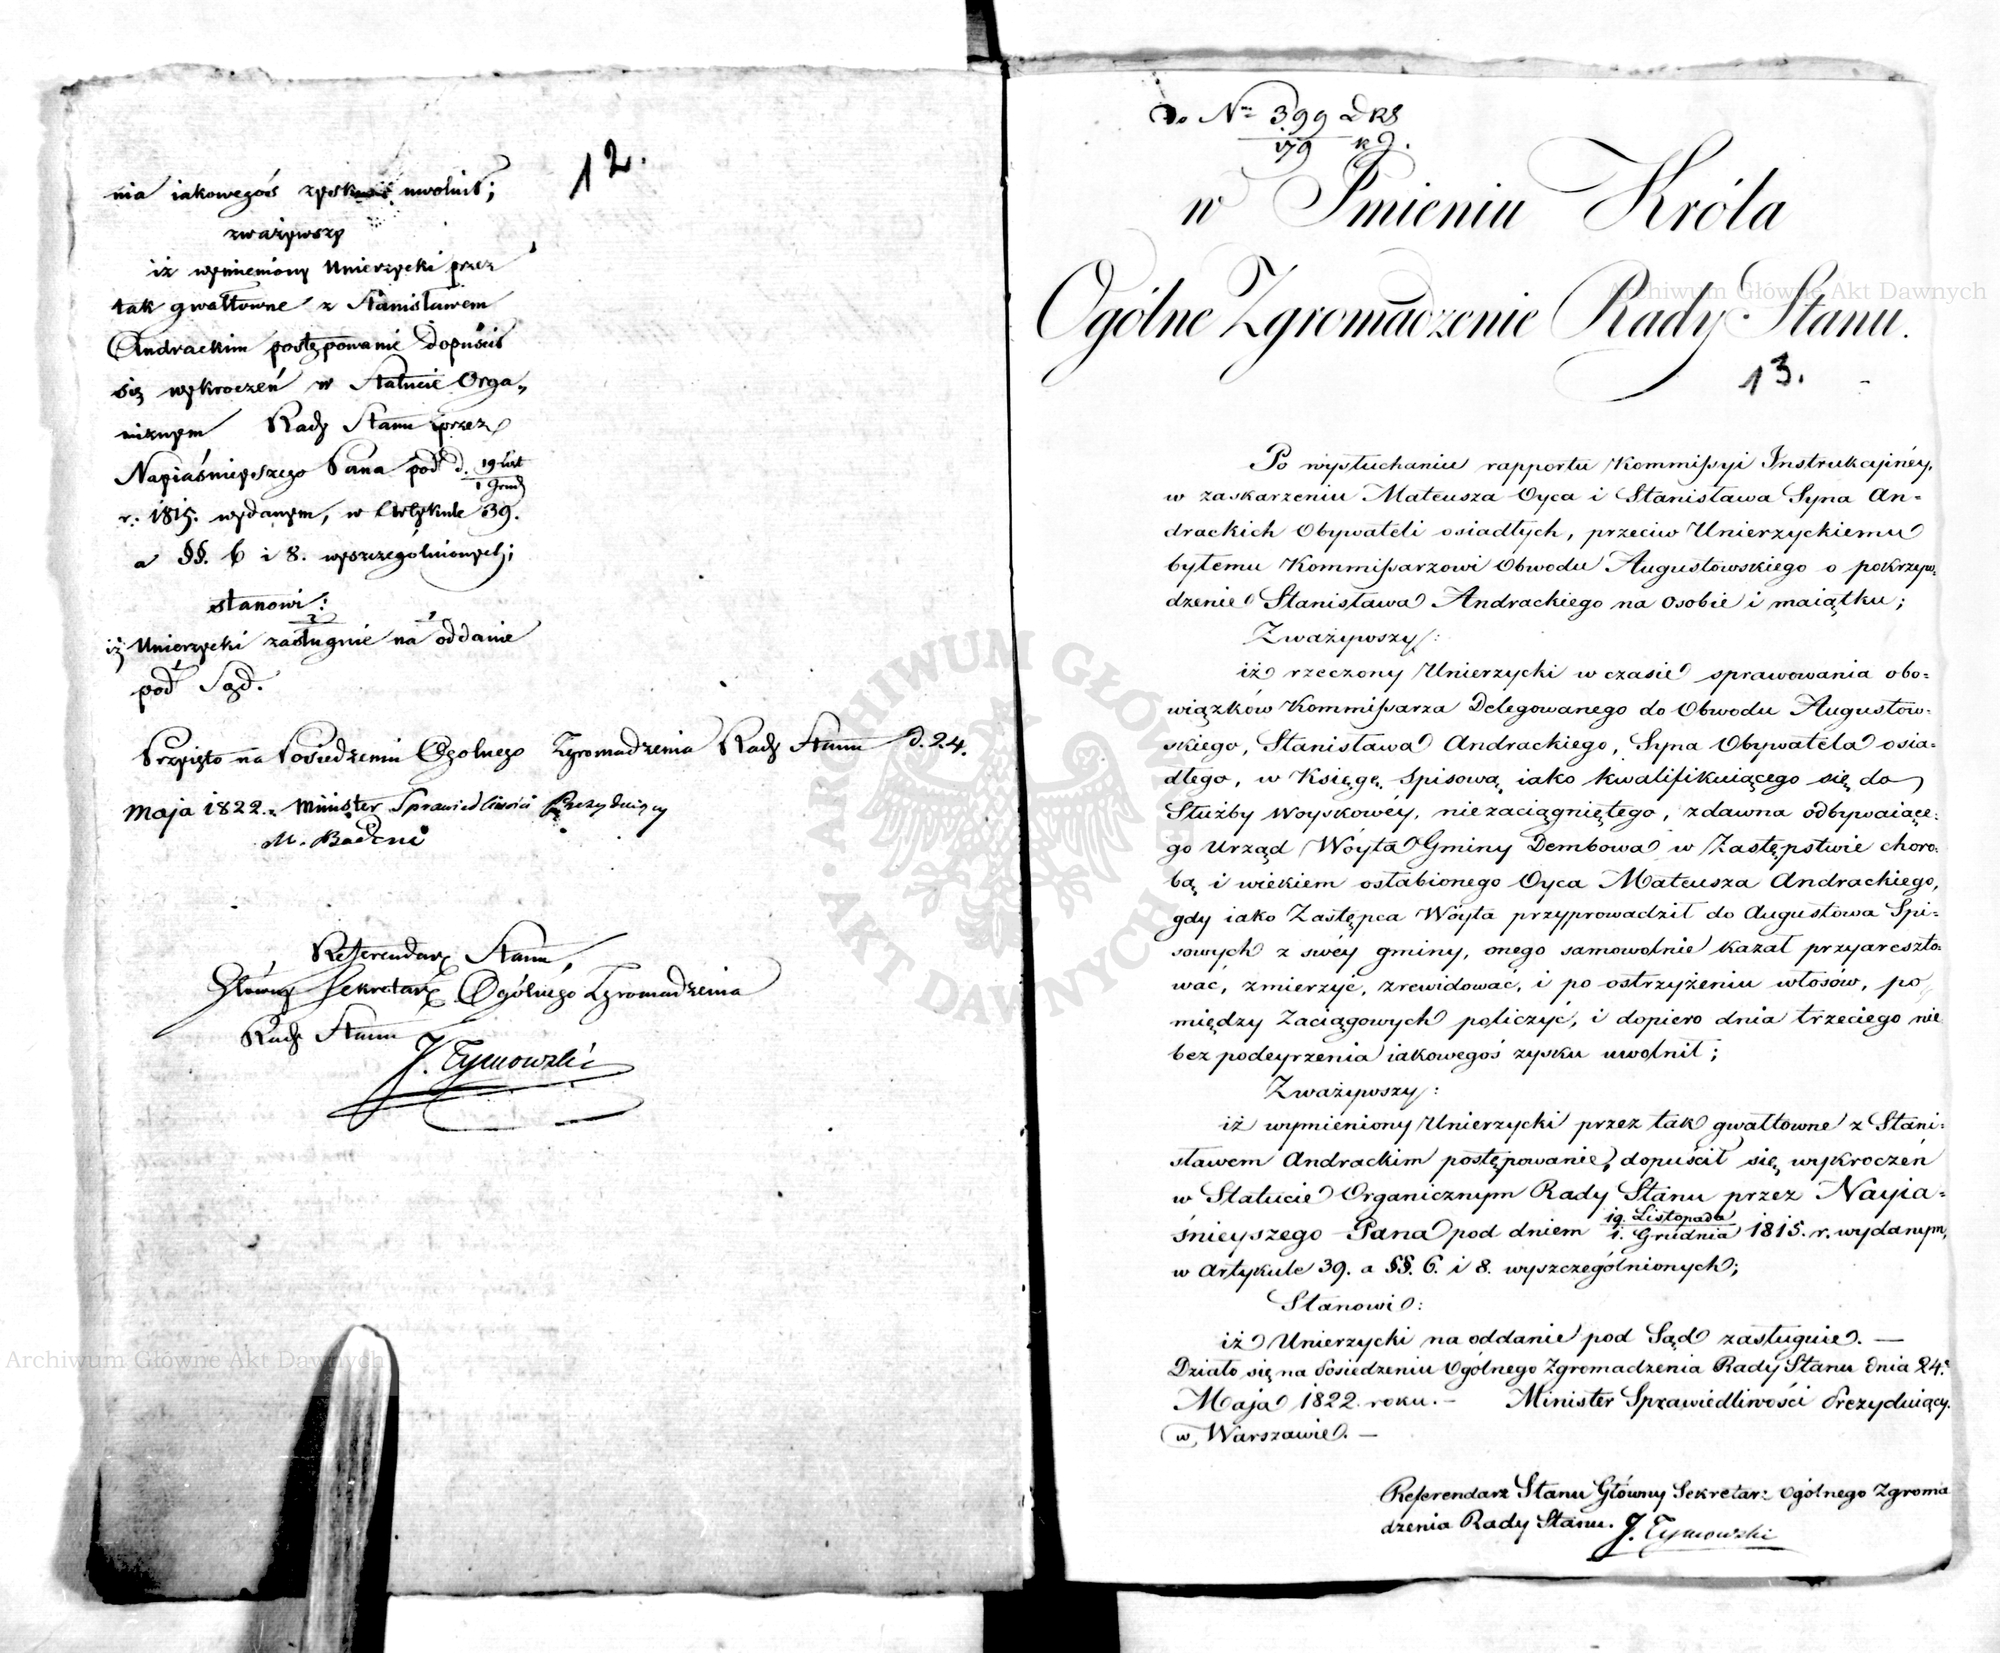 12.
nia iakowegoś zysku uwolnił;
zważywszy
iż wymieniony Unierzycki przez
tak gwałtowne z Stanisławem
Andrackim postępowanie dopuścił
się wykroczeń w Statucie Orga„
nicznym Rady Stanu przez
Nayiaśnieyszego Pana pod d. 19 List
1 Grud
r. 1815. wydanym, w Artykule 39.
a §§. 6 i 8. wyszczególnionych;
stanowi:
iż Unierzycki zasługuie na oddanie
pod Sąd.
Przyięto na Posiedzeniu Ogólnego Zgromadzenia Rady Stanu d. 24.
Maja 1822. Minister Sprawiedliwości Prezyduiący
M. Badeni
Referendarz Stanu,
Główny Sekretarz Ogólnego Zgromadzenia
Rady Stanu
J. Tymowski
Do Nro 399 DRS
179 kg.
w Imieniu Króla
Ogólne Zgromadzenie Rady Stanu.
13.
Po wysłuchaniu rapportu Kommißyi Instrukcyinéy,
w zaskarzeniu Mateusza Oyca i Stanisława Syna An=
drackich Obywateli osiadłych, przeciw Unierzyckiemu
byłemu Kommißarzowi Obwodu Augustowskiego o pokrzyw=
dzenie Stanisława Andrackiego na osobie i maiątku;
Zważywszy:
iż rzeczony Unierzycki w czasie sprawowania obo=
wiązków Kommißarza Delegowanego do Obwodu Augustow=
skiego, Stanisława Andrackiego, Syna Obywatela osia=
dłego, w Księgę Spisową iako kwalifikuiącego się do
Służby Woyskowéy, niezaciągniętego, zdawna odbywaiące=
go Urząd Wóyta Gminy Dembowa w Zastępstwie choro=
bą i wiekiem osłabionego Oyca Mateusza Andrackiego,
gdy iako Zastępca Wóyta przyprowadził do Augustowa Spi=
sowych z swéy gminy, onego samowolnie kazał przyareszto=
wać, zmierzyć, zrewidować, i po ostrzyżeniu włosów, po
między Zaciągowych policzyć, i dopiero dnia trzeciego nie
bez podeyrzenia iakowegoś zysku uwolnił;
Zważywszy:
iż wymieniony Unierzycki przez tak gwałtowne z Stani=
sławem Andrackim postępowanie, dopuścił się wykroczeń
w Statucie Organicznym Rady Stanu przez Nayia=
śnieyszego Pana pod dniem 19. Listopada
1. Grudnia 1815. r. wydanym,
w Artykule 39. a §§. 6. i 8. wyszczególnionych;
Stanowi:
iż Unierzycki na oddanie pod Sąd zasługuie. —
Działo się na Posiedzeniu Ogólnego Zgromadzenia Rady Stanu dnia 24.
Maja 1822. roku. — Minister Sprawiedliwości Prezyduiący.
w Warszawie. —
Referendarz Stanu Główny Sekretarz Ogólnego Zgroma
dzenia Rady Stanu. J. Tymowski
Archiwum Główne Akt Dawnych
Archiwum Główne Akt Dawnych
ARCHIWUM GŁÓWNE AKT DAWNYCH